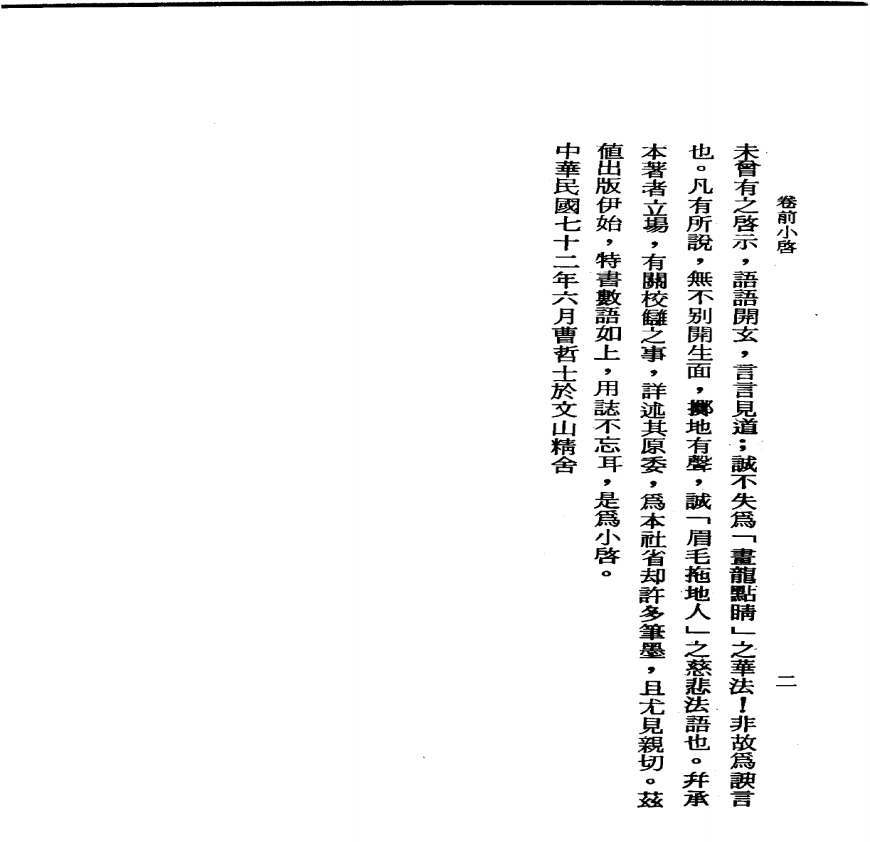 卷前小啓
二
未曾有之啓示，語語開玄，言言見道；誠不失爲「畫龍點睛」之華法！非故爲諛言
也。凡有所說，無不別開生面，擲地有聲，誠「眉毛拖地人」之慈悲法語也。幷承
本著者立場，有關校讎之事，詳述其原委，爲本社省却許多筆墨，且尤見親切。茲
値出版伊始，特書數語如上，用誌不忘耳，是爲小啓。
中華民國七十二年六月曹哲士於文山精舍